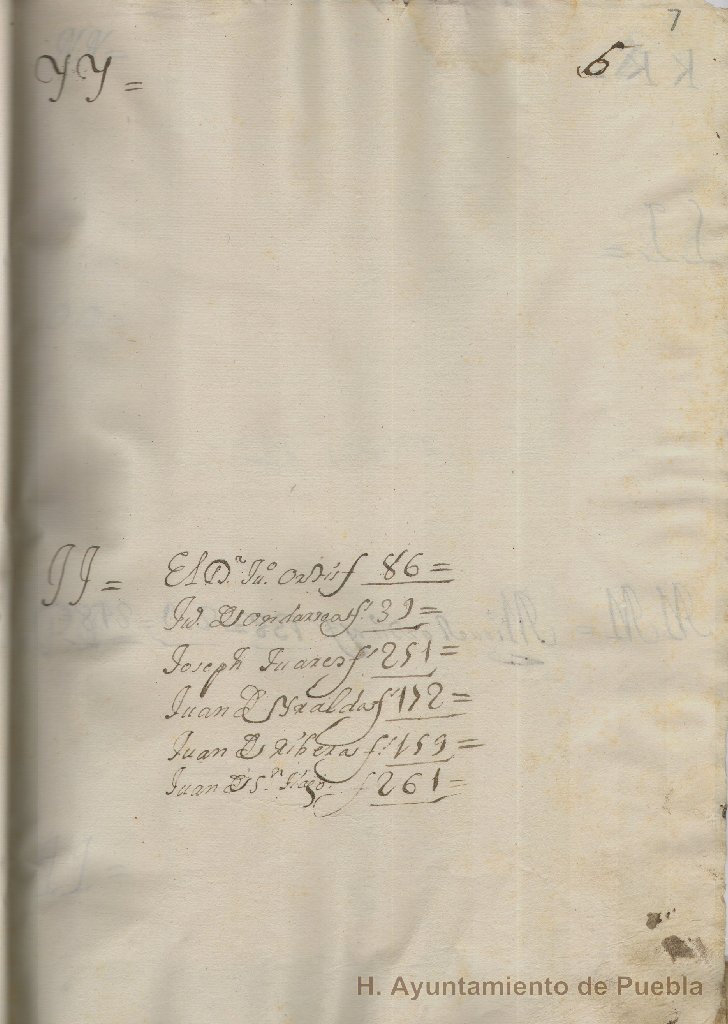 7
6
YY =
JJ = El D.ʳ Juº Ortis f 86 =
Ju.º de f.º 39 =
Joseph Juares f.º 251 =
Juan de Yralda f.º 172 =
Juan de Ribera f.º 159 =
Juan de S.ⁿ f 261 =
H. Ayuntamiento de Puebla